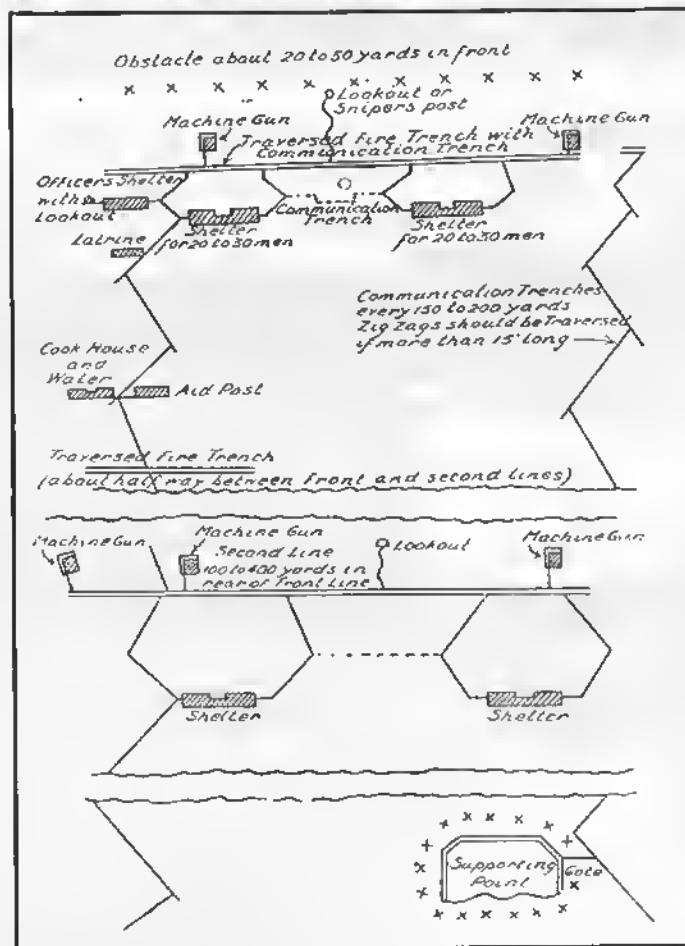 Obstacle about 20 to 50 yards in front
Lookout or
Snipers post
Machine Gun
Machine Gun
Traversed Fire Trench with
Communication Trench
Officers Shelter
with
Lookout
Communication
Trench
Shelter
for 20 to 30 men
Shelter
for 20 to 30 men
Latrine
Communication Trenches
every 150 to 200 yards
Zig Zags should be Traversed
if more than 15' long
Cook House
and
Water
Aid Post
Traversed Fire Trench
(about half way between Front and second lines)
Machine Gun
Machine Gun
Second Line
100 to 400 yards in
rear of Front Line
Lookout
Machine Gun
Shelter
Shelter
Supporting
Point
Gate